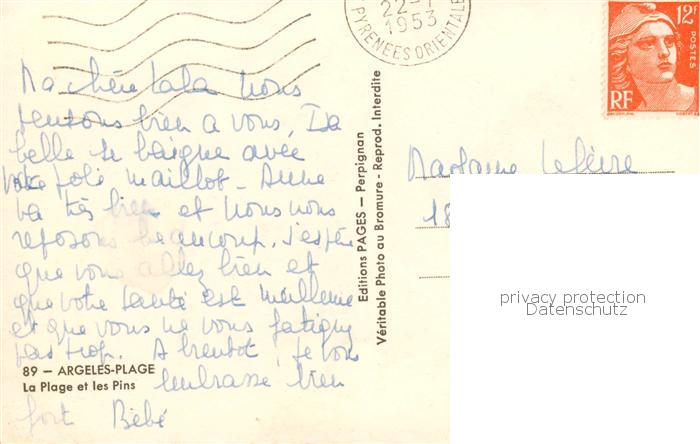 22-1
1953
PYRENEES ORIENTALE
12F
POSTES
RF
Ma chère Lala nous
pensons bien a vous, Isa
belle se baigne avec
votre joli maillot. Anne
va très bien et nous nous
reposons beaucoup. j'espère
que vous allez bien et
que votre santé est meilleure
et que vous ne vous fatiguez
pas trop. A bientot, je vous
embrasse bien
fort Bébé
89 — ARGELÈS-PLAGE
La Plage et les Pins
Editions PAGES — Perpignan
Véritable Photo au Bromure - Reprod. Interdite
Madame Lefèvre
18
privacy protection
Datenschutz